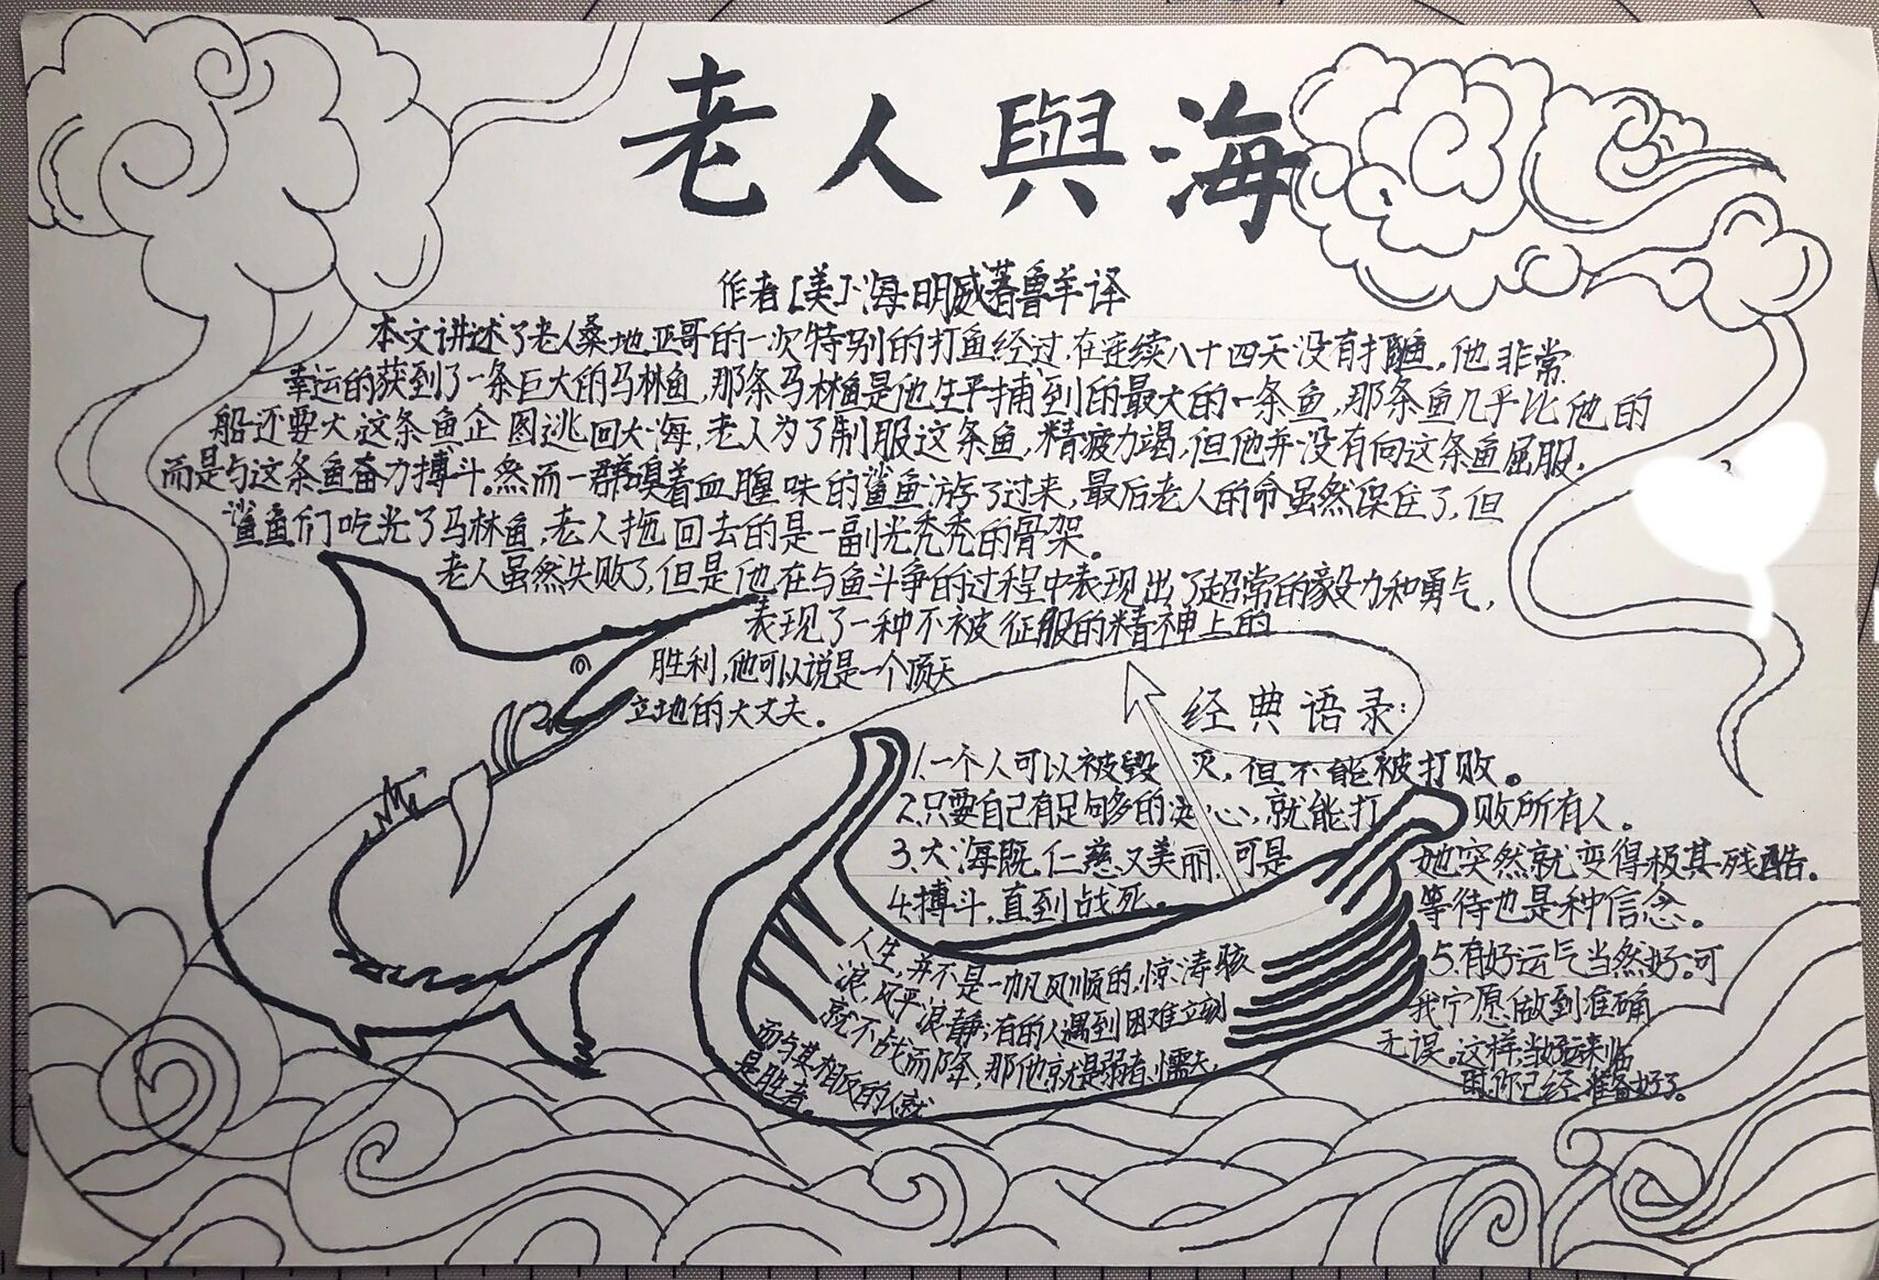 老人與海
作者[美]海明威著鲁羊译
本文讲述了老人桑地亚哥的一次特别的打鱼经过.在连续八十四天没有打鱼,他非常
幸运的获到了一条巨大的马林鱼,那条马林鱼是他生平捕到的最大的一条鱼,那条鱼几乎比他的
船还要大这条鱼企图逃回大海,老人为了制服这条鱼,精疲力竭,但他并没有向这条鱼屈服,
而是与这条鱼奋力搏斗。然而一群嗅着血腥味的鲨鱼游了过来,最后老人的命虽然保住了,但
鲨鱼们吃光了马林鱼,老人拖回去的是一副光秃秃的骨架。
老人虽然失败了,但是他在与鱼斗争的过程中表现出了超常的毅力和勇气,
表现了一种不被征服的精神上的
胜利,他可以说是一个顶天
立地的大丈夫。
经典语录:
1.一个人可以被毁灭,但不能被打败。
2.只要自己有足够多的决心,就能打败所有人。
3.大海既仁慈又美丽.可是她突然就变得极其残酷.
4.搏斗,直到战死。等待也是种信念。
5.有好运气当然好.可
我宁愿做到准确
无误.这样,当好运来临
时,你已经准备好了。
人生,并不是一帆风顺的,惊涛骇
浪,风平浪静;有的人遇到困难立刻
就不战而降,那他就是弱者、懦夫,
而与其相反的人就
是胜者。